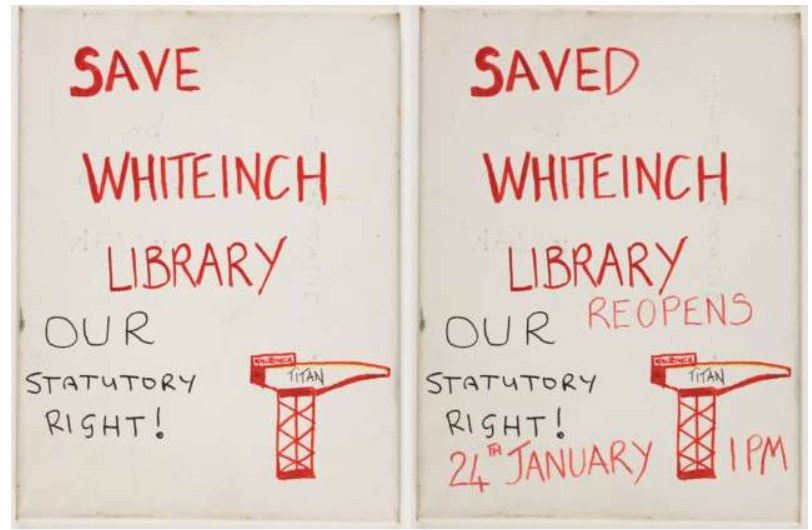 SAVE
WHITEINCH
LIBRARY
OUR
STATUTORY
RIGHT!
WHITEINCH
TITAN
SAVED
WHITEINCH
LIBRARY
REOPENS
OUR
STATUTORY
RIGHT!
WHITEINCH
TITAN
24TH JANUARY 1PM